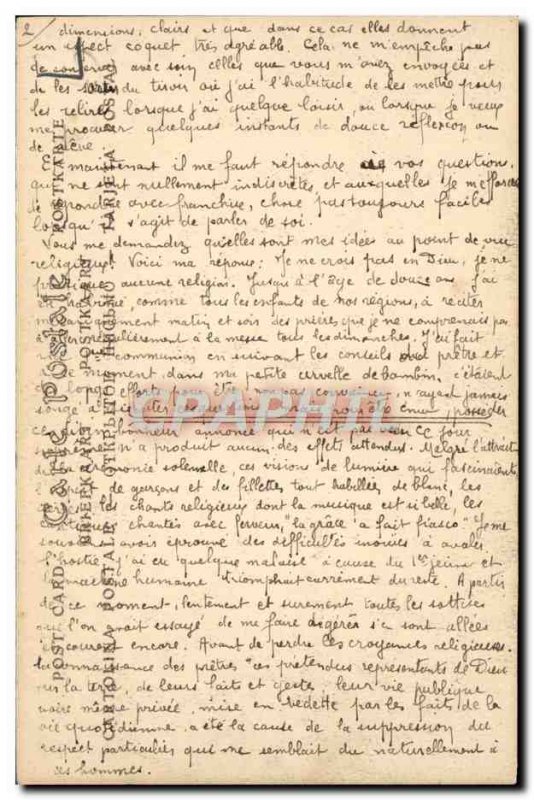 2 dimensions, clairs et que dans ce cas elles donnent
un aspect coquet très agréable. Cela ne m'empêche pas
de conserver avec soin celles que vous m'avez envoyées et
de les du tiroir où j'ai l'habitude de les mettre pour
les relire lorsque j'ai quelque loisir, ou lorsque je veux
me procurer quelques instants de douce réflexion ou
de rêve.
Et maintenant il me faut répondre à vos questions,
qui ne sont nullement indiscrètes, et auxquelles je m'efforce
de répondre avec franchise, chose pas toujours facile
lorsqu'il s'agit de parler de soi.
Vous me demandez quelles sont mes idées au point de vue
religieux. Voici ma réponse: Je ne crois pas en Dieu, je ne
pratique aucune religion. Jusqu'à l'âge de douze ans j'ai
été habitué, comme tous les enfants de nos régions, à réciter
matin et soir des prières que je ne comprenais pas
à la messe tous les dimanches. J'ai fait
communion en suivant les conseils du prêtre et
ce moment, dans ma petite cervelle de bambin, c'étaient
de longs efforts pour être n'ayant jamais
songé à
ce bonheur annoncé qui n'est pas ce jour
n'a produit aucun des effets attendus. Malgré l'attrait
de la cérémonie solennelle, ces visions de lumière qui fascinaient
de garçons et de fillettes tout habillées de blanc, les
les chants religieux dont la musique est si belle, les
cantiques chantés avec ferveur, "la grâce" a fait fiasco. Je me
souviens avoir éprouvé des difficultés inouïes à avaler
l'hostie, j'ai eu quelque malaise à cause du 1er jeûne et
la machine humaine triomphait carrément du reste. A partir
de ce moment, lentement et surement toutes les sottises
que l'on avait essayé de me faire digérer s'en sont allées
et courent encore. Avant de perdre les croyances religieuses,
la connaissance des prêtres "ces prétendus représentants de Dieu
sur la terre, de leurs faits et gestes, leur vie publique
voire même privée, mise en vedette par les faits de la
vie quotidienne a été la cause de la suppression du
respect particulier qui me semblait du naturellement à
ces hommes.
Carte Postale
POST CARD
POSTKARTE
BRIEFKAART
POSTKAART
CARTOLINA POSTALE
ОТКРЫТОЕ ПИСЬМО
TARJETA POSTAL
CPAPHIL